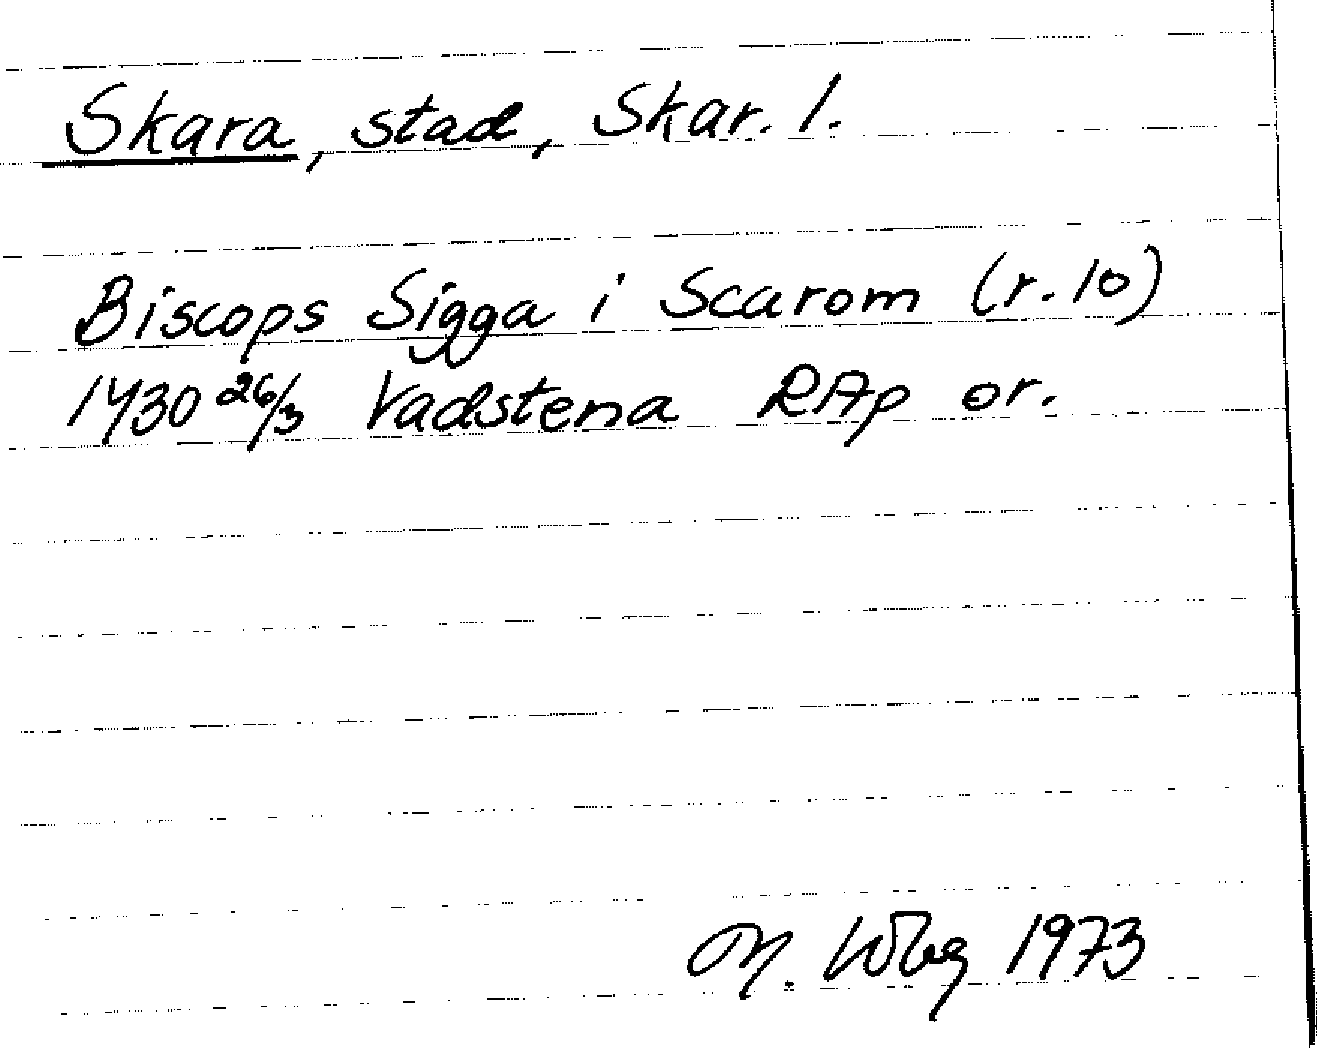 Skara, stad, Skar. l.
Biscops Sigga i Scarom (r. 10)
1430 26/3 Vadstena RAp or.
M. Wbg 1973